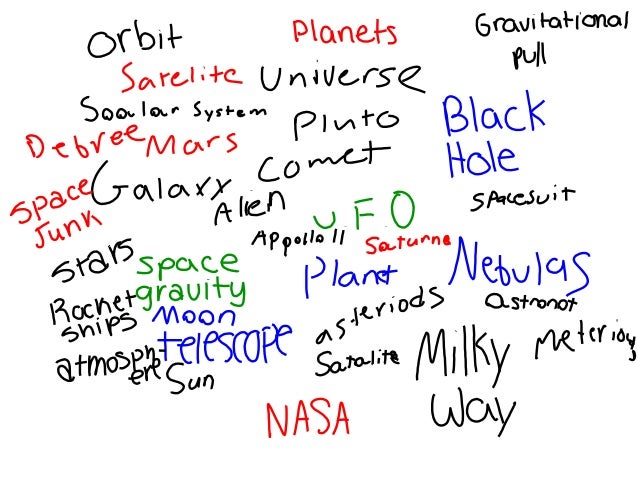 orbit
Planets
Gravitational
pull
Satelite
Universe
Soolar System
Pluto
Black
Hole
Debree
Mars
Comet
Space
Junk
Galaxy
Alien
UFO
spacesuit
Appollo 11
Saturne
stars
space
gravity
Planet
Nebulas
Rocket
ships
Moon
asteriods
astronot
atmosph
ere
telescope
Satalite
Milky
Way
Sun
NASA